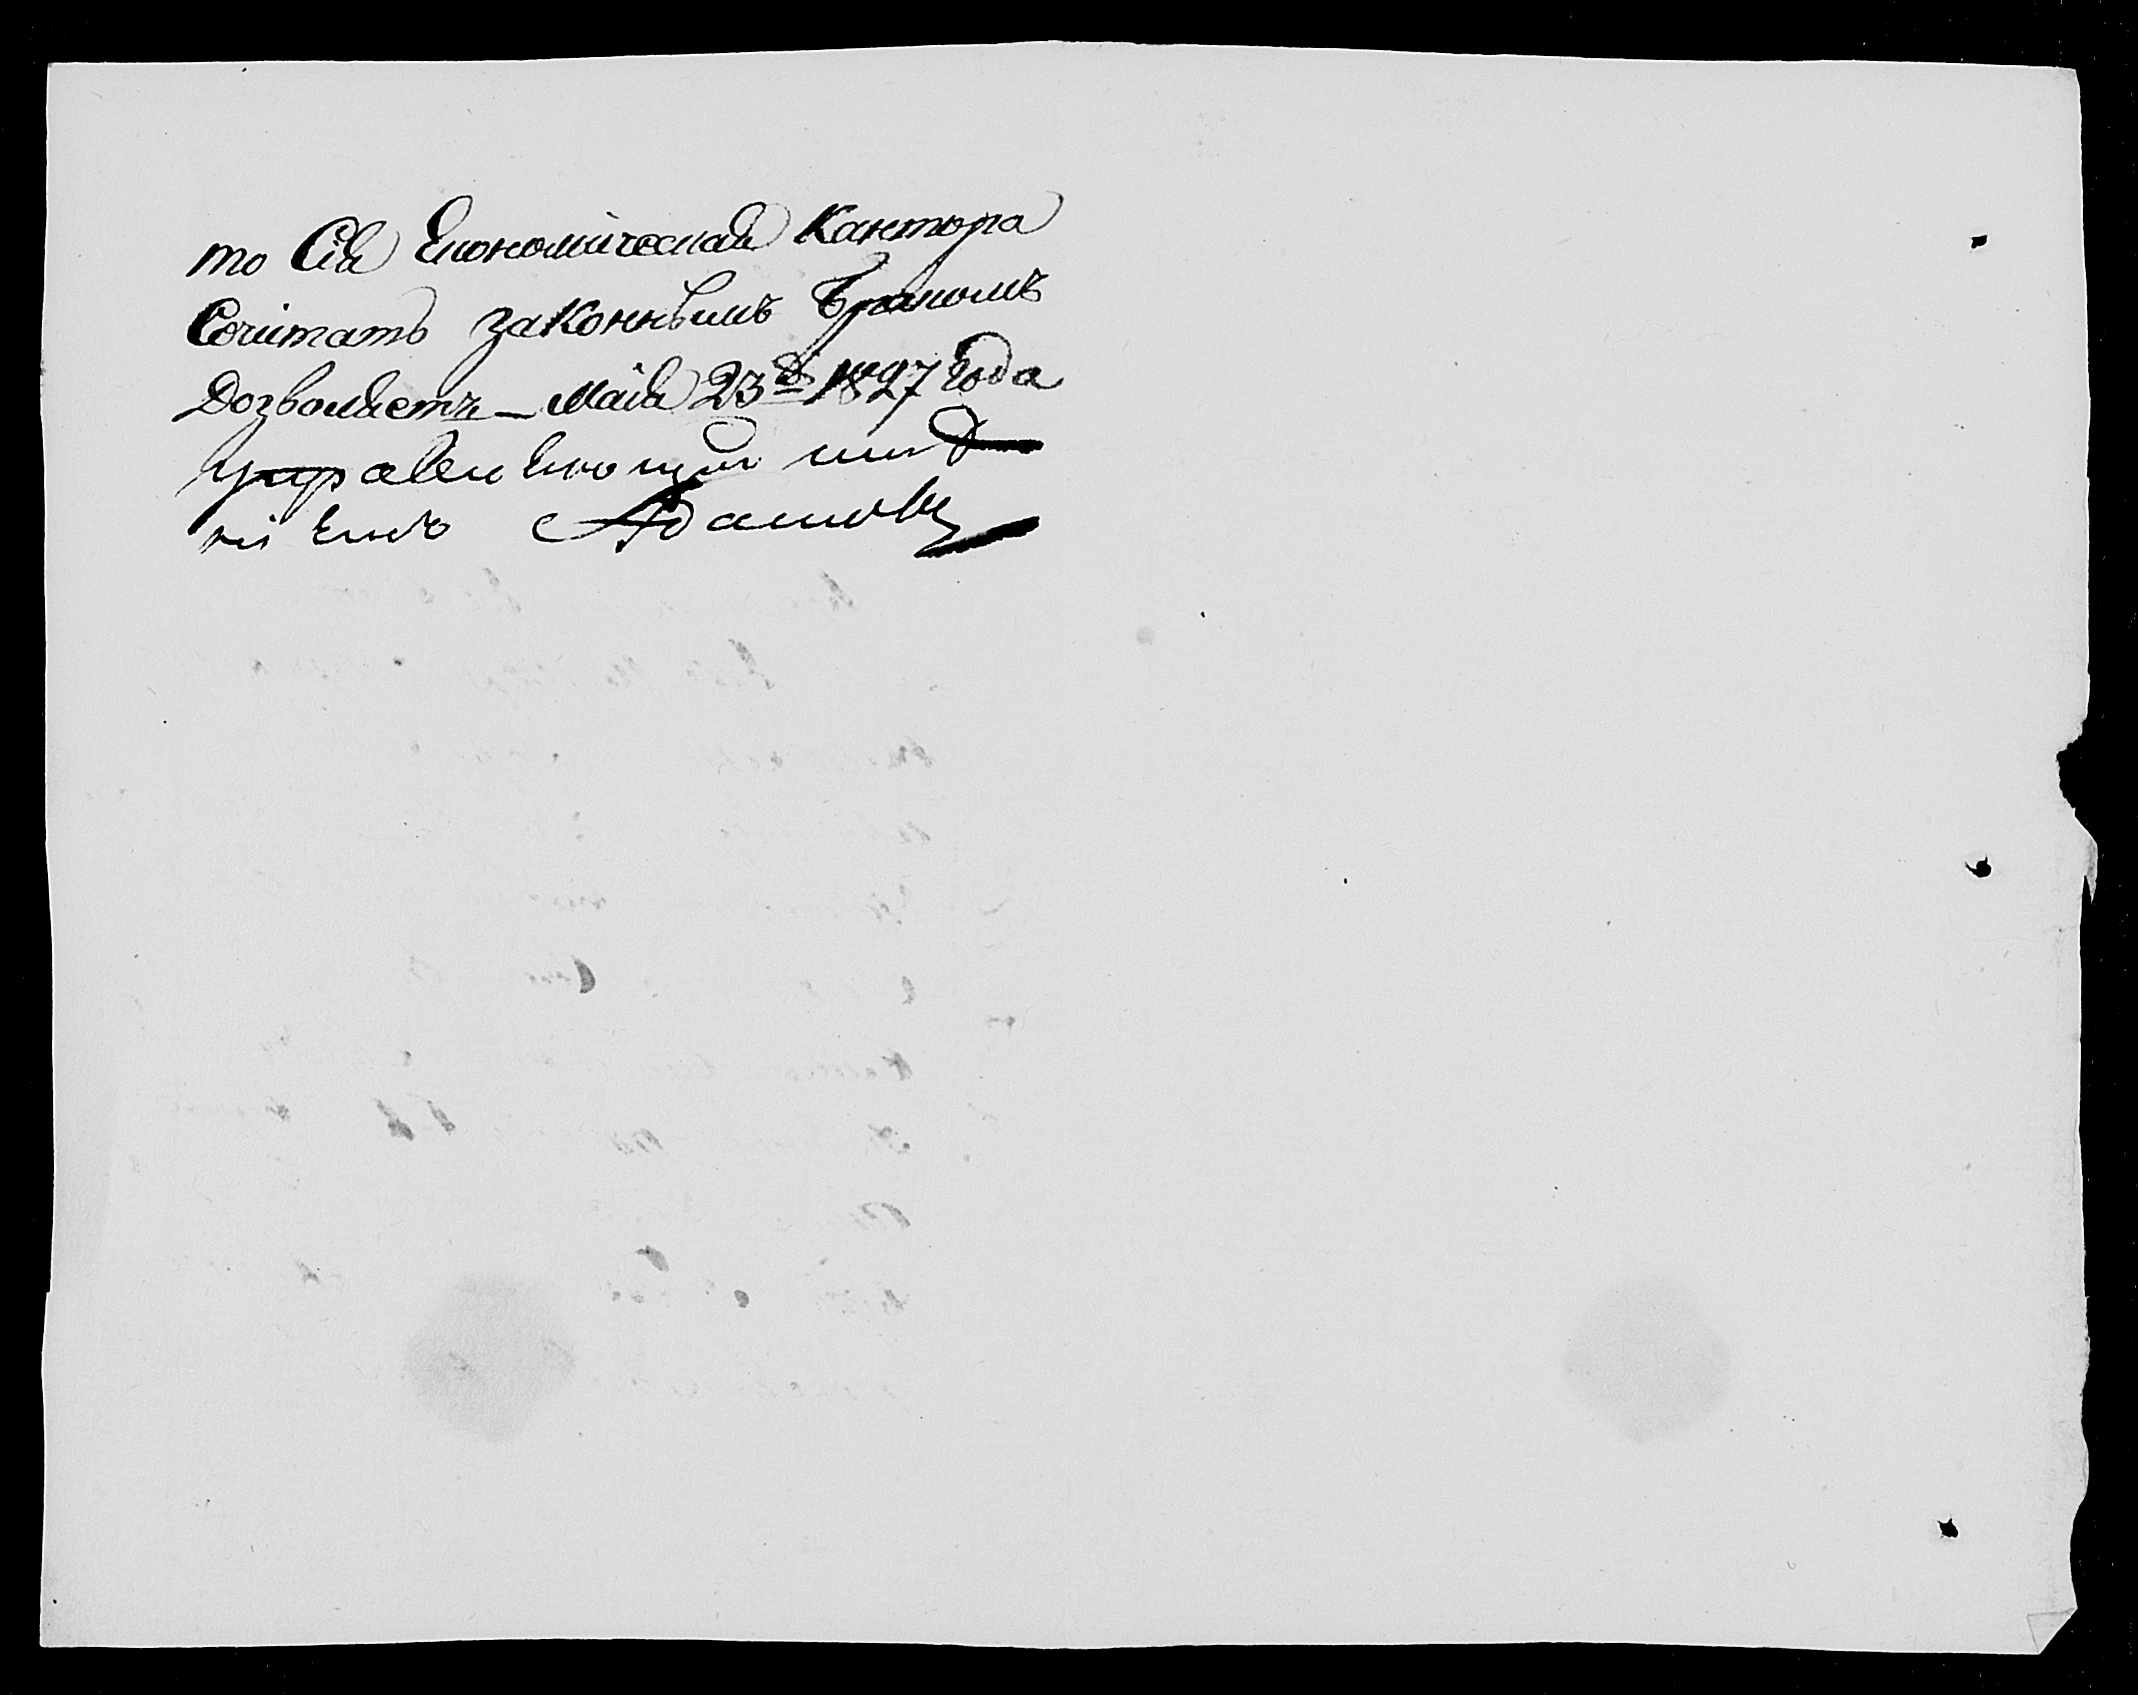 то Сія Економическая Кантора
Сочитать законнымъ Бракомъ
Дозволяетъ — Маія 23 д 1827 года
Управляющій имѣ
ніемъ Адамовъ